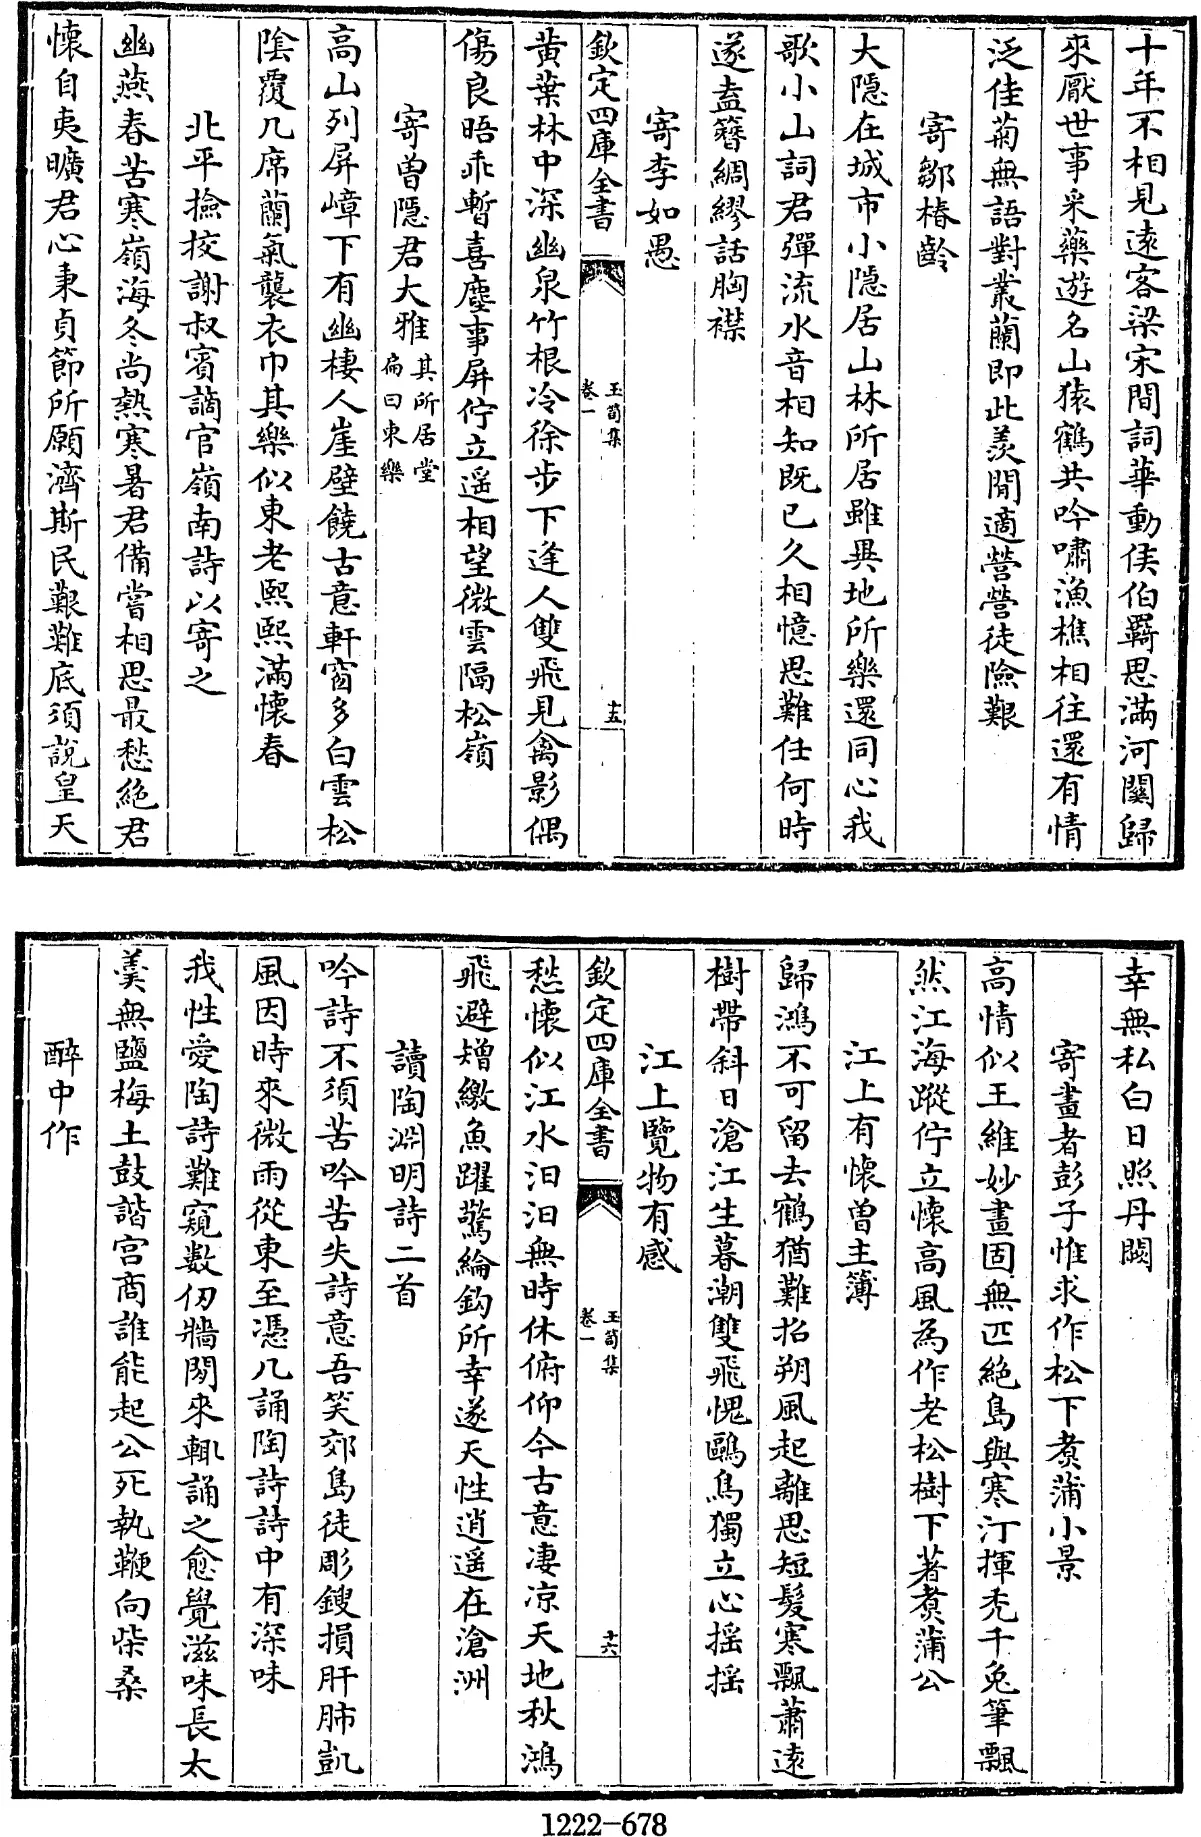 十年不相見遠客梁宋間詞華動侯伯羇思滿河關歸
來厭世事采藥遊名山猿鶴共吟嘯漁樵相往還有情
泛佳菊無語對叢蘭即此羨閒適營營徒險艱
寄鄒椿齡
大隱在城市小隱居山林所居雖異地所樂還同心我
歌小山詞君彈流水音相知既已久相憶思難任何時
遂盍簪綢繆話胸襟
寄李如愚
欽定四庫全書
玉笥集
卷一
十五
黃葉林中深幽泉竹根冷徐步下逢人雙飛見禽影偶
傷良晤乖暫喜塵事屏佇立遥相望微雲隔松嶺
寄曾隱君大雅其所居堂
扁曰東樂
高山列屏嶂下有幽棲人崖壁饒古意軒窗多白雲松
陰覆几席蘭氣襲衣巾其樂似東老熙熙滿懷春
北平撿挍謝叔賓謫官嶺南詩以寄之
幽燕春苦寒嶺海冬尚熱寒暑君備嘗相思最愁絶君
懷自夷曠君心秉貞節所願濟斯民艱難底須說皇天
幸無私白日照丹闕
寄畫者彭子惟求作松下煑蒲小景
高情似王維妙畫固無匹絶島與寒汀揮禿千兔筆飄
然江海蹤佇立懷高風為作老松樹下著煑蒲公
江上有懷曾主簿
歸鴻不可留去鶴猶難招朔風起離思短髮寒飄蕭遠
樹帶斜日滄江生暮潮雙飛愧鷗鳥獨立心揺揺
江上覽物有感
欽定四庫全書
玉笥集
卷一
十六
愁懷似江水汩汩無時休俯仰今古意凄凉天地秋鴻
飛避矰繳魚躍驚綸鈎所幸遂天性逍遥在滄洲
讀陶淵明詩二首
吟詩不須苦吟苦失詩意吾笑郊島徒彫鎪損肝肺凱
風因時來微雨從東至憑几誦陶詩詩中有深味
我性愛陶詩難窺數仞牆閒來輒誦之愈覺滋味長太
羮無鹽梅土鼓諧宫商誰能起公死執鞭向柴桑
醉中作
1222-678